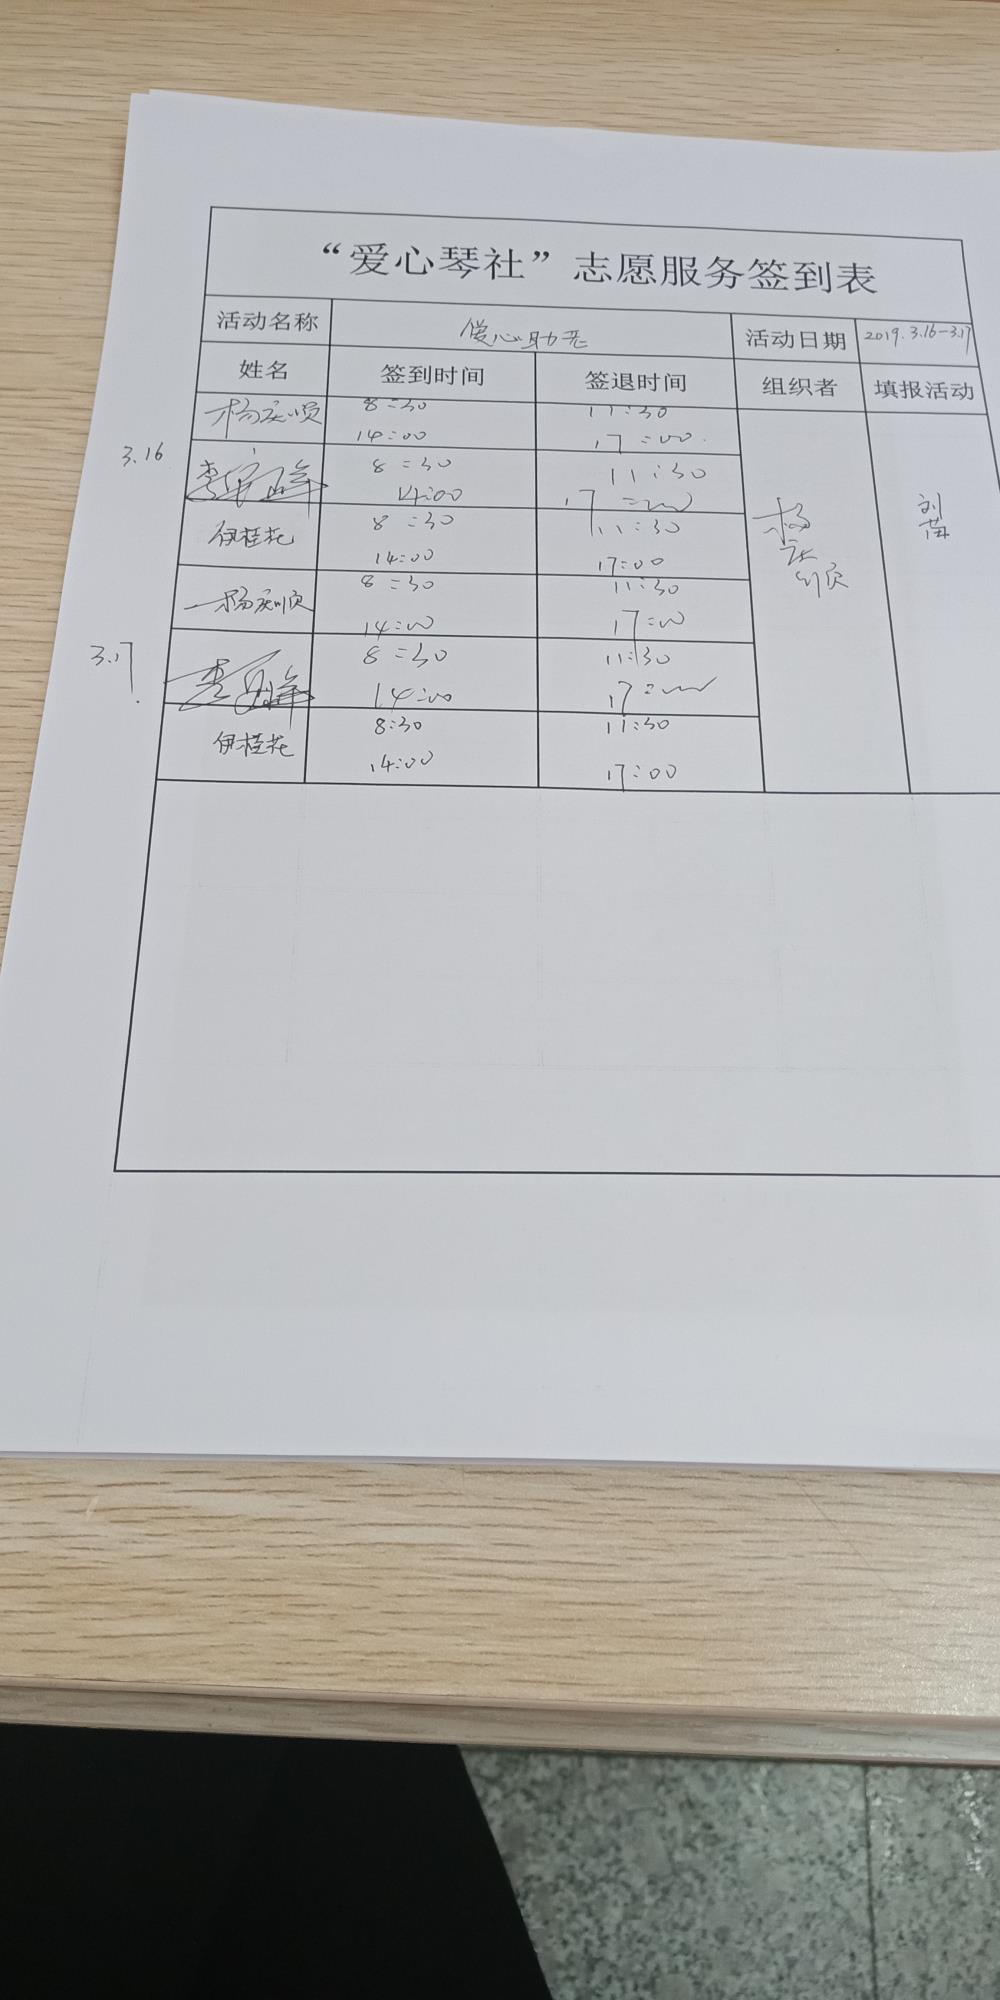 “爱心琴社”志愿服务签到表
活动名称 爱心助老 活动日期 2019.3.16-3.17
姓名 签到时间 签退时间 组织者 填报活动
杨庆顺 8:30 11:30
14:00 17:00
3.16
8:30 11:30
14:00 17:00
伊桂花 8:30 11:30
14:00 17:00
杨庆顺 8:30 11:30
14:00 17:00
3.17
8:30 11:30
14:00 17:00
伊桂花 8:30 11:30
14:00 17:00
杨庆顺
刘苗